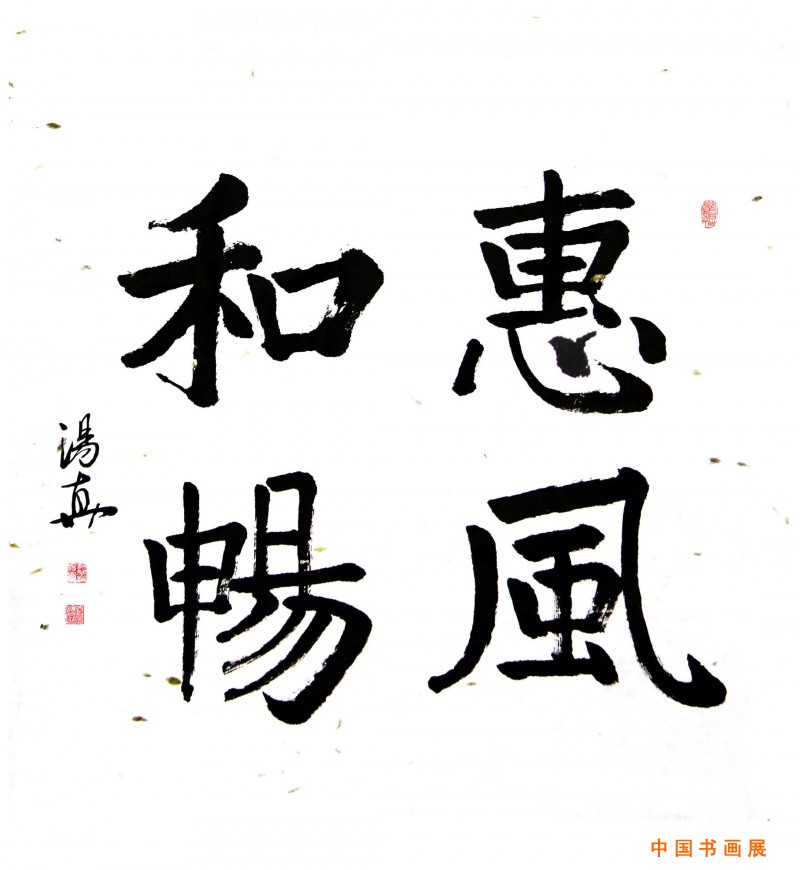 惠風
和暢
湯真
中国书画展